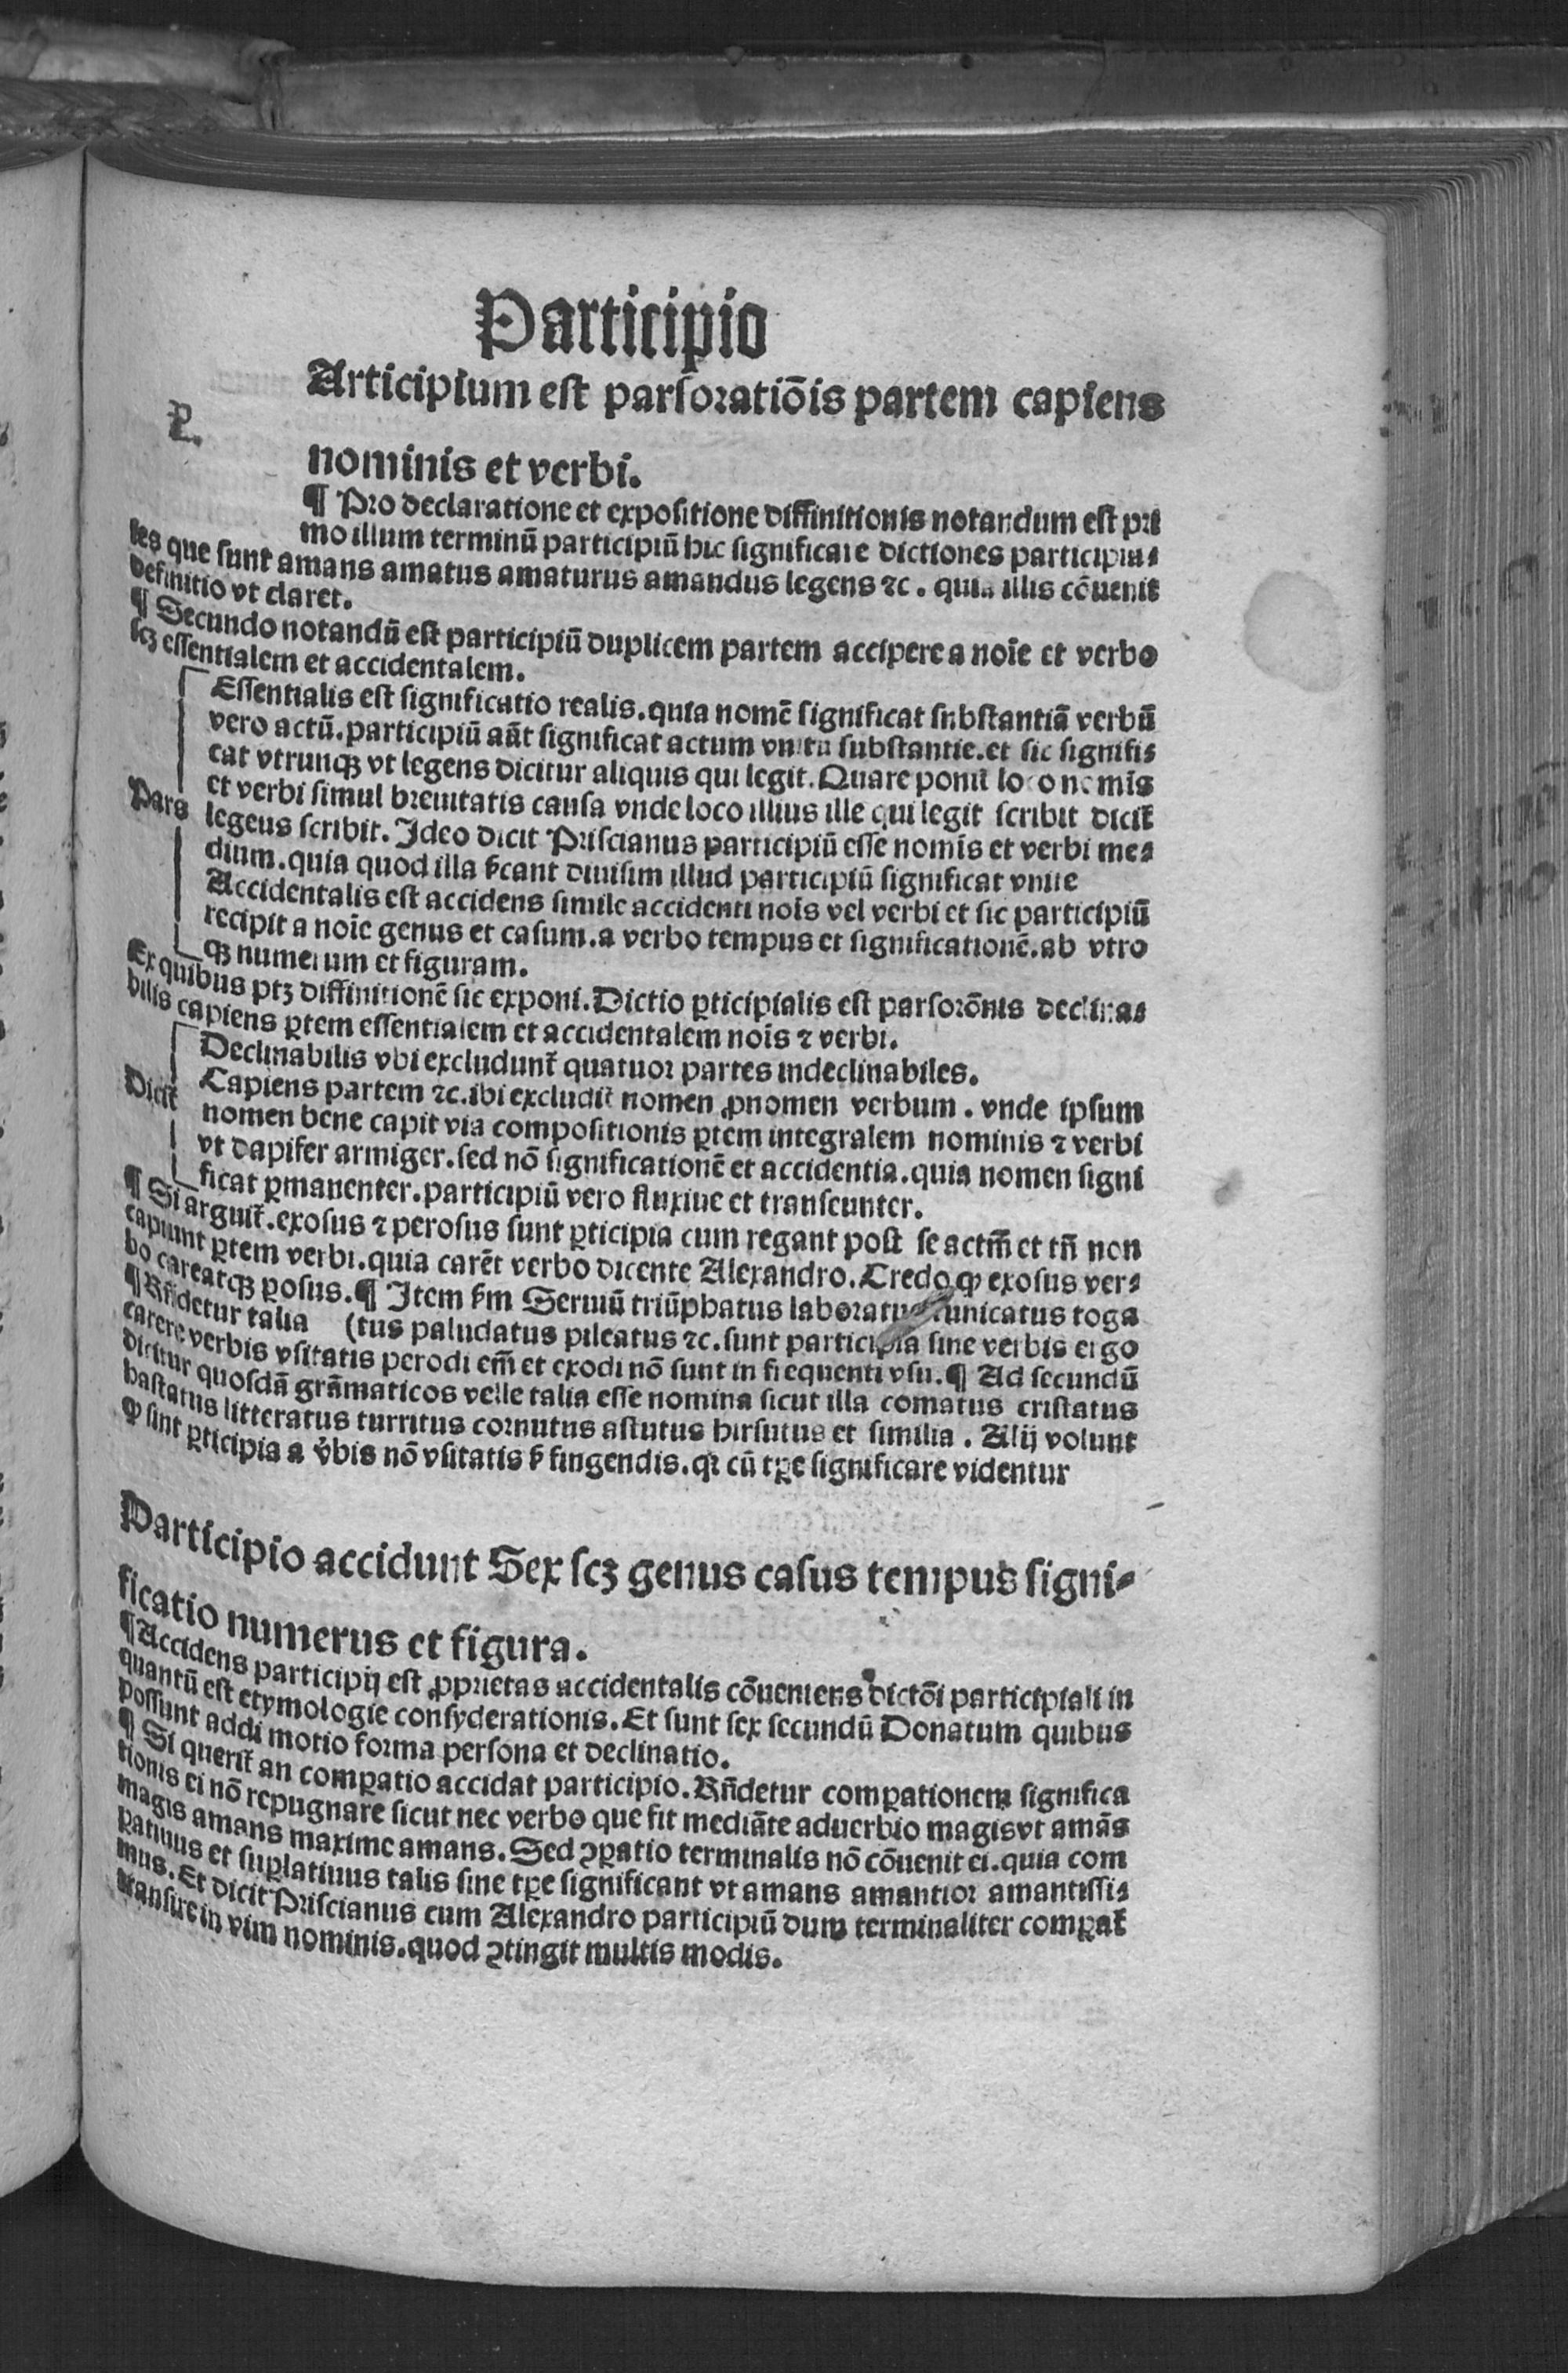 Participio
P.
Articipium est parsoratiōis partem capiens
nominis et verbi.
¶ Pro declaratione et expositione diffinitionis notandum est pri
mo illum terminū participiū hic significare dictiones participia⸗
les que sunt amans amatus amaturus amandus legens ⁊c. quia illis cōuenit
definitio vt claret.
¶ Secundo notandū est participiū duplicem partem accipere a noīe et verbo
scꝫ essentialem et accidentalem.
Essentialis est significatio realis.quia nomē significat substantiā verbū
vero actū.participiū aūt significat actum vnitū substantie.et sic signifi⸗
cat vtrunqꝫ vt legens dicitur aliquis qui legit. Quare ponit̄ loco nomīs
et verbi simul breuitatis causa vnde loco illius ille qui legit scribit dicit̄
Pars
legens scribit. Ideo dicit Priscianus participiū esse nomīs et verbi me⸗
dium.quia quod illa ẜcant diuisim illud participiū significat vnite
Accidentalis est accidens simile accidenti noīs vel verbi et sic participiū
recipit a noīe genus et casum.a verbo tempus et significationē.ab vtro
qꝫ numerum et figuram.
Ex quibus ptꝫ diffinitionē sic exponi. Dictio ꝑticipialis est parsorōnis declina⸗
bilis capiens ꝑtem essentialem et accidentalem noīs ⁊ verbi.
Declinabilis vbi excludunt̄ quatuor partes indeclinabiles.
Dicit̄
Capiens partem ⁊c.ibi excludit̄ nomen ꝓnomen verbum. vnde ipsum
nomen bene capit via compositionis ꝑtem integralem nominis ⁊ verbi
vt dapifer armiger.sed nō significationē et accidentia.quia nomen signi
ficat ꝑmanenter.participiū vero fluxiue et transeunter.
¶ Si arguit̄.exosus ⁊ perosus sunt ꝑticipia cum regant post se actm̄ et tn̄ non
capiunt ꝑtem verbi.quia carēt verbo dicente Alexandro. Credo ꝙ exosus ver⸗
bo careatqꝫ ꝑosus.¶ Item ẜm Seruiū triūphatus laboratus tunicatus toga
¶ Rn̄detur talia (tus paludatus pileatus ⁊c.sunt participia sine verbis ergo
carere verbis vsitatis perodi em̄ et exodi nō sunt in frequenti vsu.¶ Ad secundū
dicitur quosdā grāmaticos velle talia esse nomina sicut illa comatus cristatus
hastatus litteratus turritus cornutus astutus hirsutus et similia. Alij volunt
ꝙ sint ꝑticipia a v̄bis nō vsitatis ẜ fingendis.qꝛ cū tꝑe significare videntur
Participio accidunt Sex scꝫ genus casus tempus signi⸗
ficatio numerus et figura.
¶ Accidens participij est ꝓprietas accidentalis cōueniens dictōi participiali in
quantū est etymologie consyderationis. Et sunt sex secundū Donatum quibus
possunt addi motio forma persona et declinatio.
¶ Si querit̄ an comꝑatio accidat participio. Rn̄detur comꝑationem significa
tionis ei nō repugnare sicut nec verbo que fit mediāte aduerbio magisvt amās
magis amans maxime amans. Sed ꝯꝑatio terminalis nō cōuenit ei.quia com
ꝑatiuus et suꝑlatiuus talis sine tꝑe significant vt amans amantior amantissi⸗
mus. Et dicit Priscianus cum Alexandro participiū dum terminaliter comꝑat̄
transire in vim nominis.quod ꝯtingit multis modis.